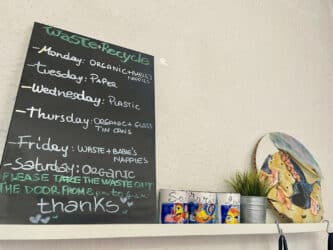 Waste+Recycle
-Monday: ORGANIC+BABIE'S
NAPPIES
-Tuesday: PAPER
-Wednesday: PLASTIC
-Thursday: ORGANIC + GLASS
TIN CANS
-Friday: WASTE + BABIE'S
NAPPIES
-Saturday: ORGANIC
PLEASE TAKE THE WASTE OUT
THE DOOR FROM
thanks